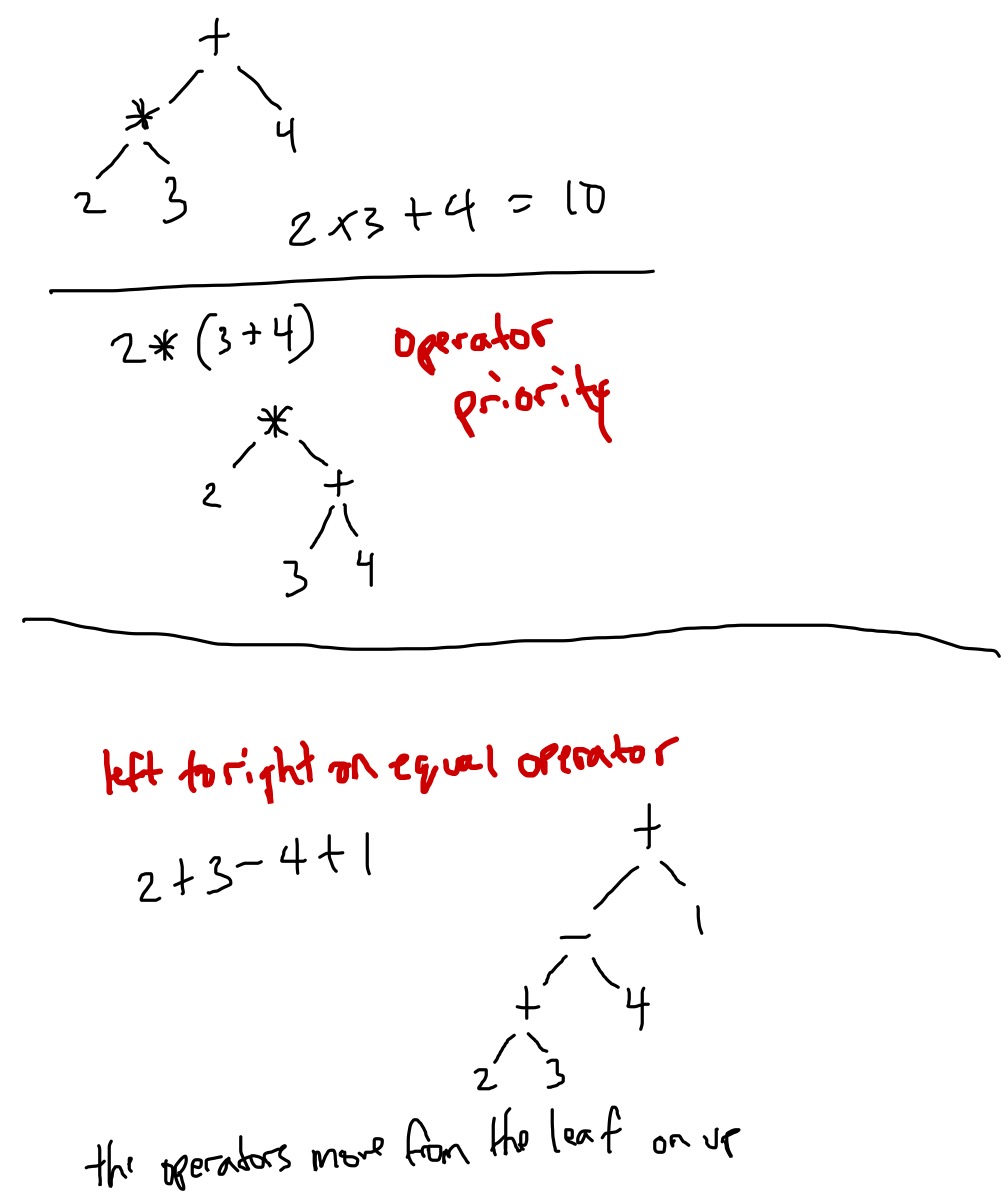 +
* 4
2 3
2 x 3 + 4 = 10
2 * (3 + 4)
operator
priority
*
2 +
3 4
left to right on equal operator
2 + 3 - 4 + 1
+
- 1
+ 4
2 3
the operators move from the leaf on up